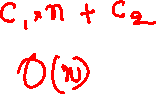 C₁ * n + C₂
O(n)